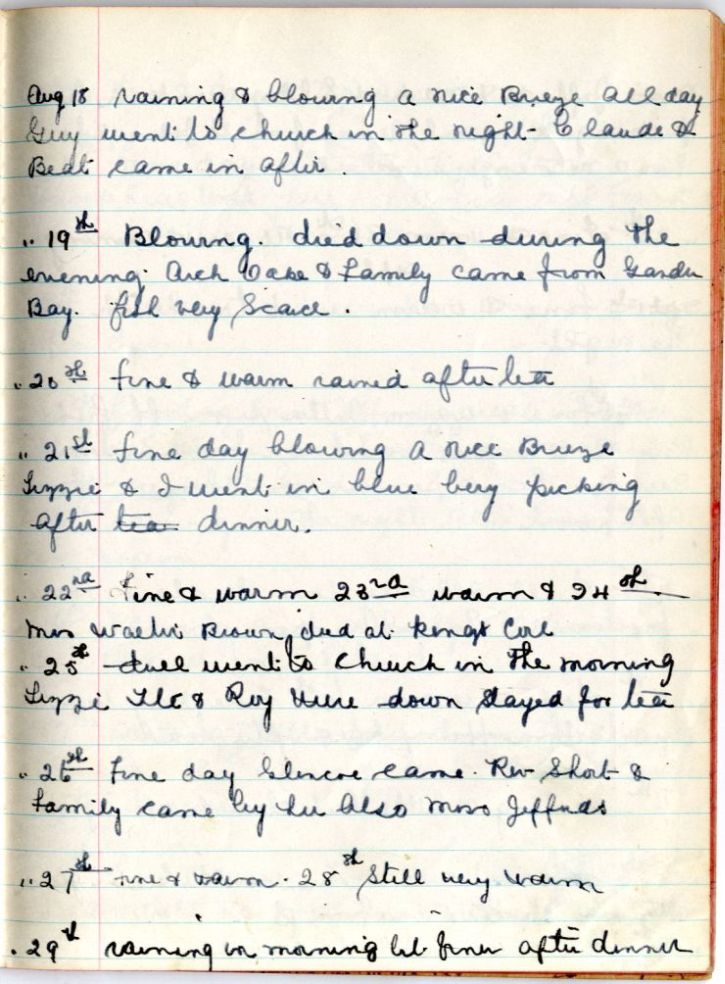 Aug 18 raining & blowing a nice Breeze all day
Guy went to church in the night Claude &
Beat came in after.
" 19th Blowing. died down during the
evening. Arch Oake & Family came from Gander
Bay. fish very Scarce.
" 20th fine & warm rained after tea
" 21st fine day blowing a nice Breeze
Lizzie & I went in blue bery picking
after tea dinner.
" 22nd Fine & warm 23rd warm & 24th
Mrs Walter Brown, died at Kings Cove
" 25th dull went to Church in the morning
Lizzie & Roy Here down Stayed for tea
" 26th Fine day Glencoe came. Rev Short &
Family came by her Also Mrs
" 27th Fine & warm. 28th Still very warm
" 29th raining in morning bit finer after dinner